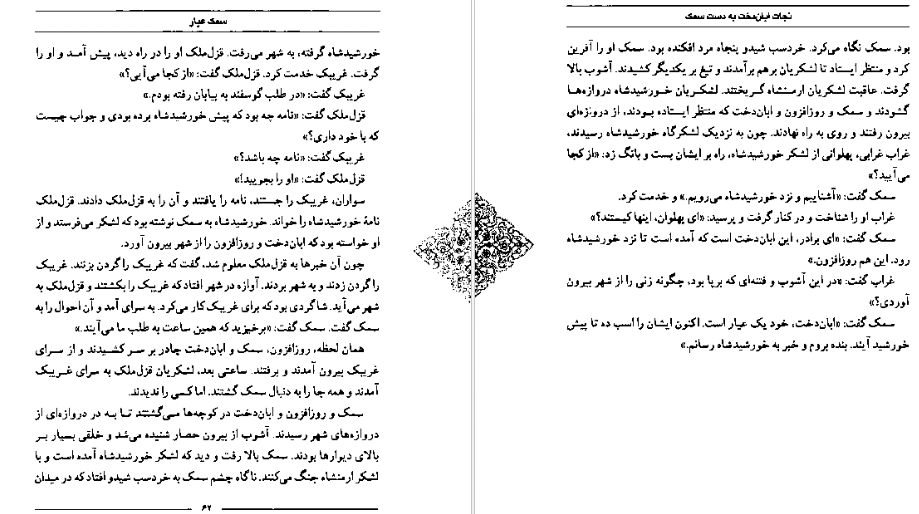 سمک عیار
خورشیدشاه گرفته، به شهر می‌رفت. قزل‌ملک او را در راه دید، پیش آمد و او را
گرفت. غریبک خدمت کرد. قزل‌ملک گفت: «از کجا می‌آیی؟»
غریبک گفت: «در طلب گوسفند به بیابان رفته بودم.»
قزل‌ملک گفت: «نامه چه بود که پیش خورشیدشاه برده بودی و جواب چیست
که با خود داری؟»
غریبک گفت: «نامه چه باشد؟»
قزل‌ملک گفت: «او را بجویید!»
سواران، غریبک را جستند، نامه را یافتند و آن را به قزل‌ملک دادند. قزل‌ملک
نامهٔ خورشیدشاه را خواند. خورشیدشاه به سمک نوشته بود که لشکر می‌فرستد و از
او خواسته بود که ابان‌دخت و روزافزون را از شهر بیرون آورد.
چون آن خبرها به قزل‌ملک معلوم شد، گفت که غریبک را گردن بزنند. غریبک
را گردن زدند و به شهر بردند. آوازه در شهر افتاد که غریبک را بکشتند و قزل‌ملک به
شهر می‌آید. شاگردی بود که برای غریبک کار می‌کرد. به سرای آمد و آن احوال را به
سمک گفت. سمک گفت: «برخیزید که همین ساعت به طلب ما می‌آیند.»
همان لحظه، روزافزون، سمک و ابان‌دخت چادر بر سر کشیدند و از سرای
غریبک بیرون آمدند و برفتند. ساعتی بعد، لشکریان قزل‌ملک به سرای غریبک
آمدند و همه جا را به دنبال سمک گشتند. اما کسی را ندیدند.
سمک و روزافزون و ابان‌دخت در کوچه‌ها می‌گشتند تا به در دروازه‌ای از
دروازه‌های شهر رسیدند. آشوب از بیرون حصار شنیده می‌شد و خلقی بسیار بر
بالای دیوارها بودند. سمک بالا رفت و دید که لشکر خورشیدشاه آمده است و با
لشکر ارمنشاه جنگ می‌کنند. ناگاه چشم سمک به خردسب شیدو افتاد که در میدان
۶۲
نجات ابان‌دخت به دست سمک
بود. سمک نگاه می‌کرد. خردسب شیدو پنجاه مرد افکنده بود. سمک او را آفرین
کرد و منتظر ایستاد تا لشکریان برهم برآمدند و تیغ بر یکدیگر کشیدند. آشوب بالا
گرفت. عاقبت لشکریان ارمنشاه گریختند. لشکریان خورشیدشاه دروازه‌ها
گشودند و سمک و روزافزون و ابان‌دخت که منتظر ایستاده بودند، از دروازه‌ای
بیرون رفتند و روی به راه نهادند. چون به نزدیک لشکرگاه خورشیدشاه رسیدند،
غراب غرابی، پهلوانی از لشکر خورشیدشاه، راه بر ایشان بست و بانگ زد: «از کجا
می‌آیید؟»
سمک گفت: «آشناییم و نزد خورشیدشاه می‌رویم.» و خدمت کرد.
غراب او را شناخت و در کنار گرفت و پرسید: «ای پهلوان، اینها کیستند؟»
سمک گفت: «ای برادر، این ابان‌دخت است که آمده است تا نزد خورشیدشاه
رود. این هم روزافزون.»
غراب گفت: «در این آشوب و فتنه‌ای که برپا بود، چگونه زنی را از شهر بیرون
آوردی؟»
سمک گفت: «ابان‌دخت، خود یک عیار است. اکنون ایشان را اسب ده تا پیش
خورشید آیند. بنده بروم و خبر به خورشیدشاه رسانم.»